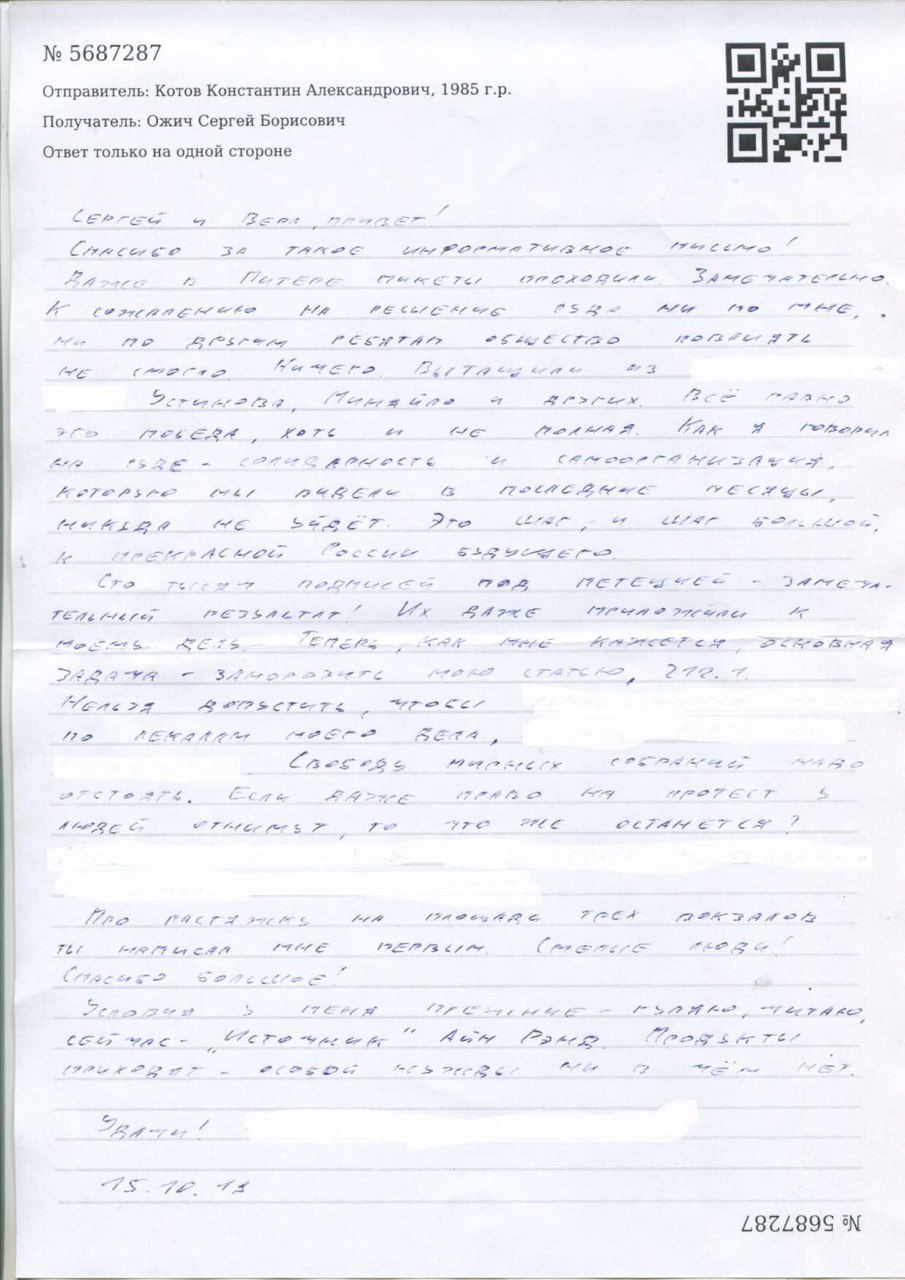 № 5687287
Отправитель: Котов Константин Александрович, 1985 г.р.
Получатель: Ожич Сергей Борисович
Ответ только на одной стороне
Сергей и Вера, привет!
Спасибо за такое информативное письмо!
Даже в Питере пикеты проходили. Замечательно.
К сожалению на решение суда ни по мне,
ни по другим ребятам общество повлиять
не смогло. Ничего. Вытащили из
Устинова, Миняйло и других. Всё равно
это победа, хоть и не полная. Как я говорил
на суде - солидарность и самоорганизация,
которую мы видели в последние месяцы,
никуда не уйдёт. Это шаг, и шаг большой,
к прекрасной России будущего.
Сто тысяч подписей под петецией - замеча-
тельный результат! Их даже приложили к
моему делу. Теперь, как мне кажется, основная
задача - заморозить мою статью, 212.1.
Нельзя допустить, чтобы
по лекалам моего дела,
Свободу мирных собраний надо
отстоять. Если даже право на протест у
людей отнимут, то что же останется?
Про растяжку на площади трех вокзалов
ты написал мне первым. Смелые люди!
Спасибо большое!
Условия у меня прежние - гуляю, читаю,
сейчас - „Источник" Айн Рэнд. Продукты
приходят - особой нужды ни в чём нет.
Удачи!
15.10.19
№ 5687287